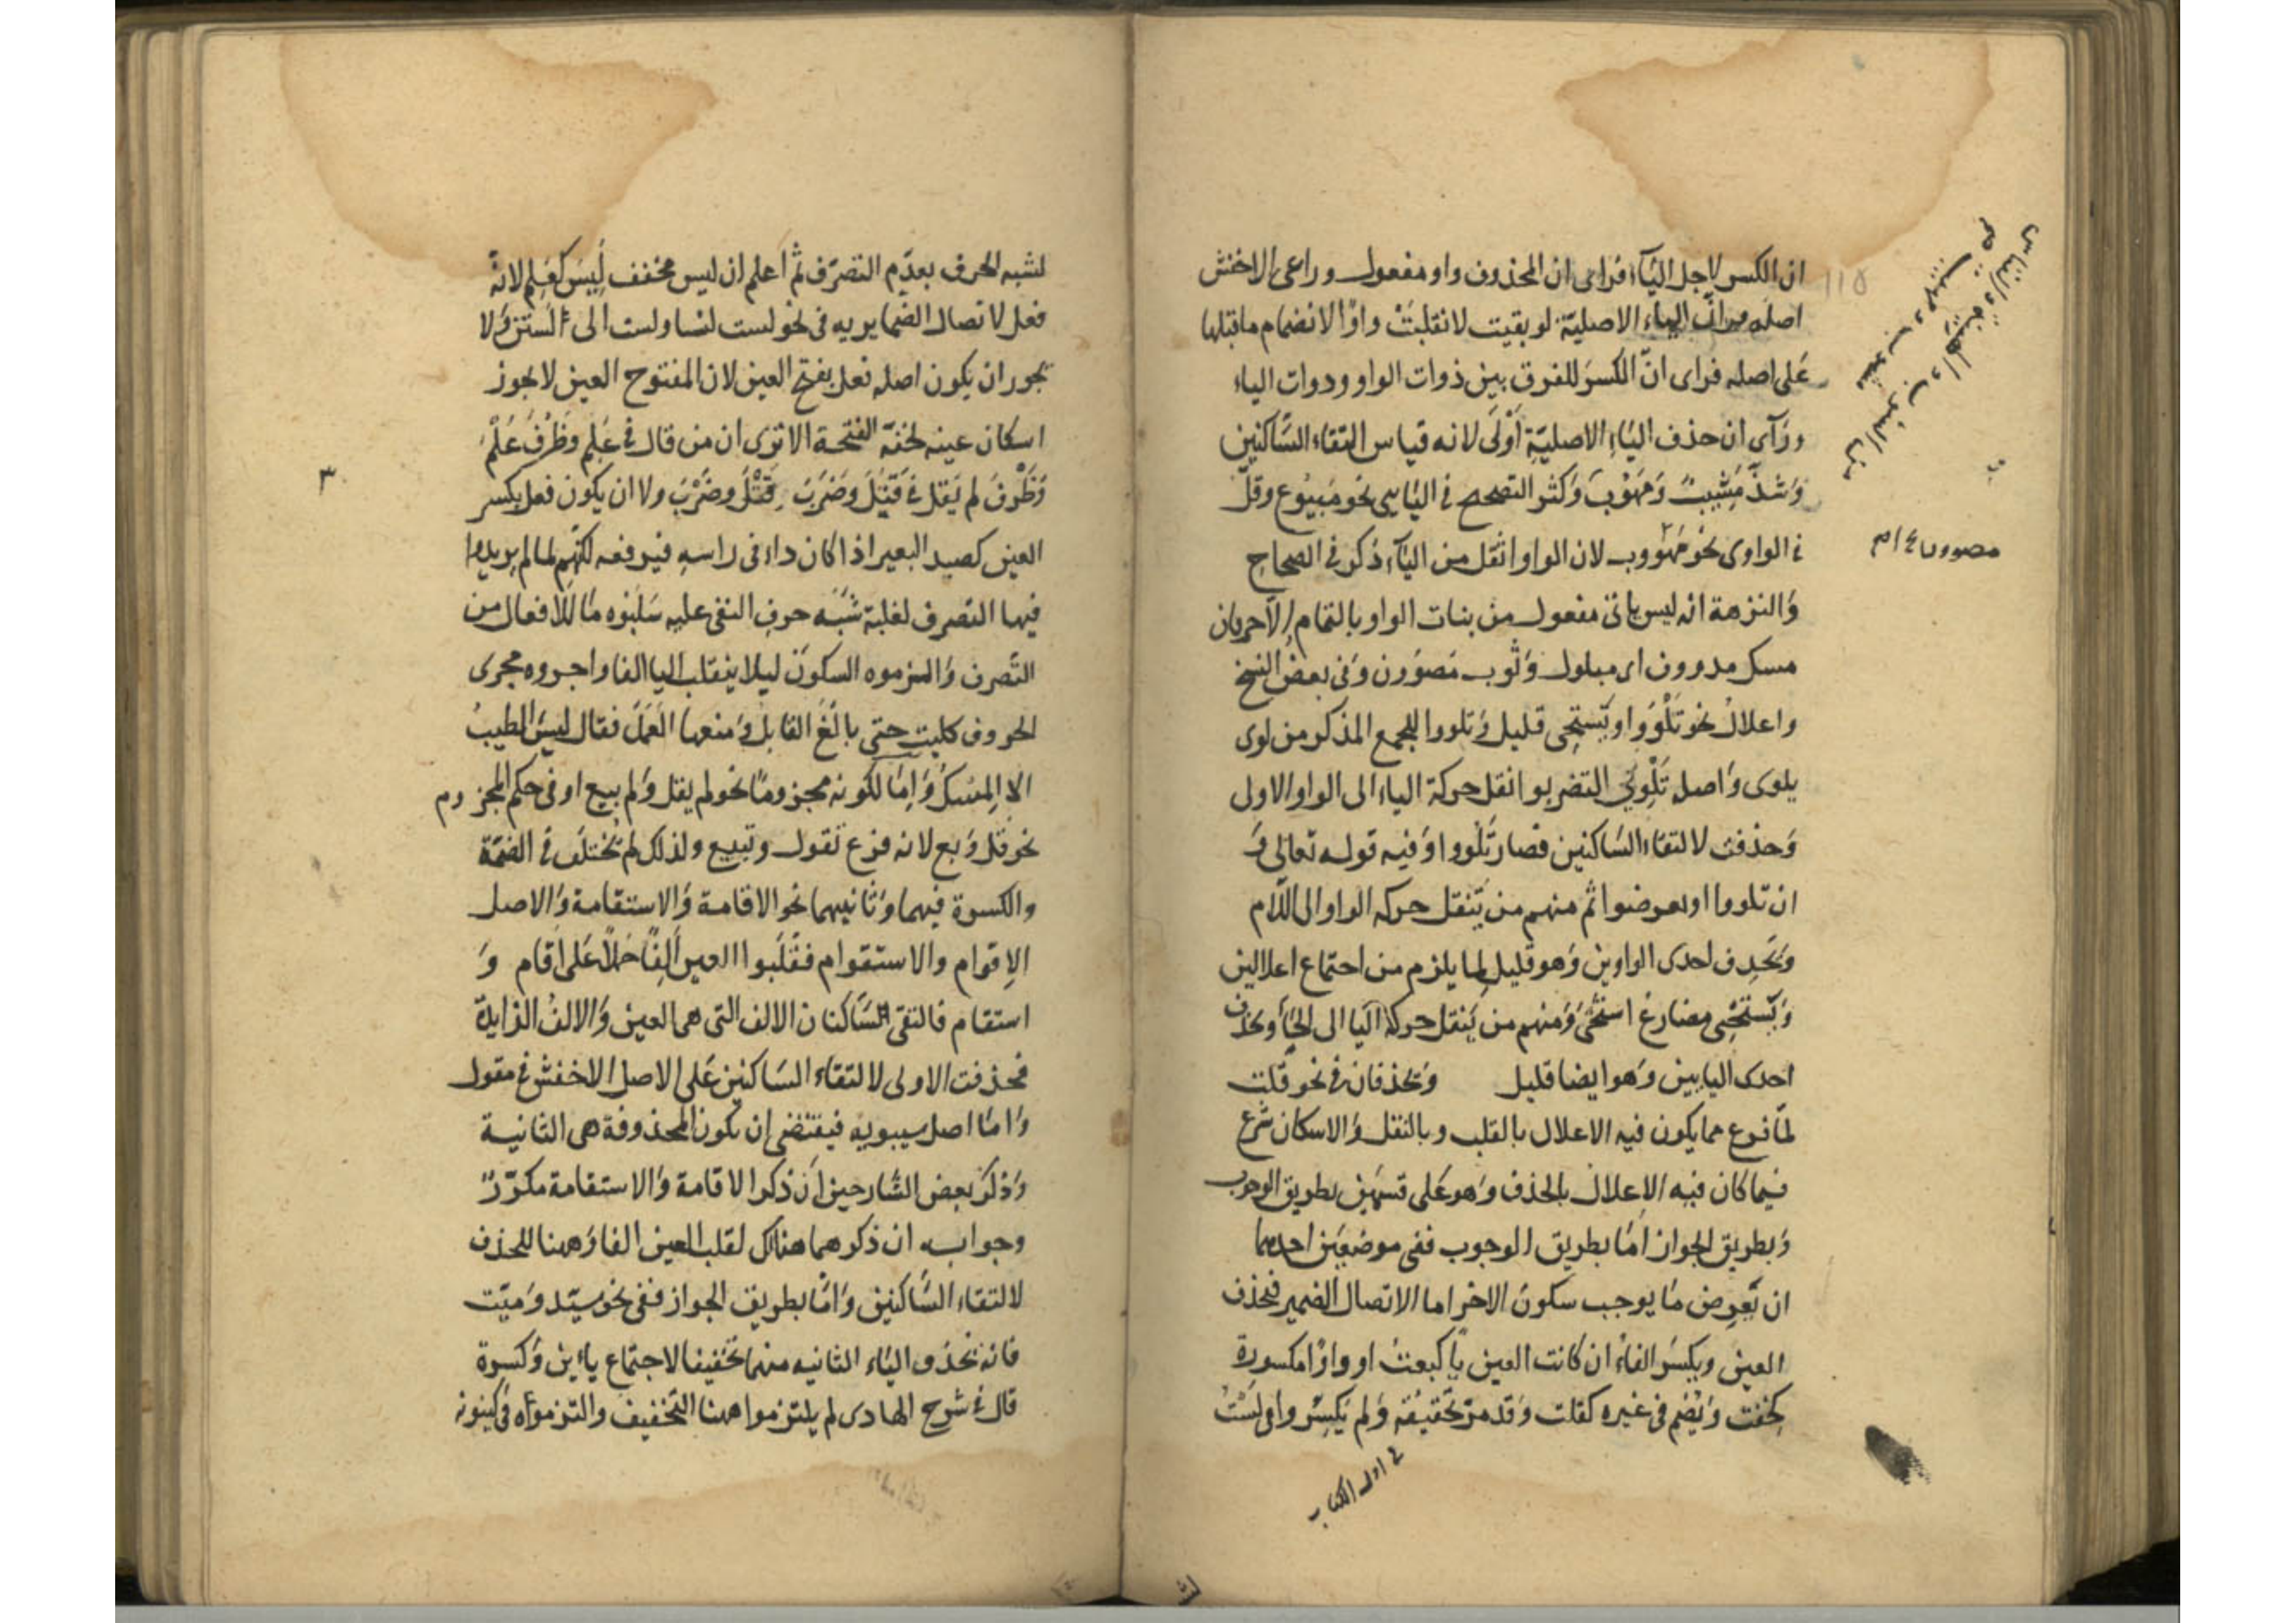 ان الكسر لاجل اليآء فراى ان المحذوف واو مفعول وراعى الاخفش
اصله من ان الياء الاصليّة لو بقيت لانقلبت واوًا لانضمام ماقبلها
على اصله فراى انّ الكسر للفرق بين ذوات الواو وذوات الياء
ورآى ان حذف الياء الاصليّة اولى لانه قياس التقاء السّاكنين
وشذّ مَشِيبٌ ومَهُوْبٌ وكثر التصحيح في اليايى نحو مبيُوع وقلّ
في الواوى نحو مَهْووب لان الواو اثقل من اليآء ذكر في الصحاح
والنزهة انه ليس ياتى مفعول من بنات الواو بالتمام الّا حرفان
مسك مدووف اى مبلول وثوب مَصْوُون وفى بعض النسخ
واعلال نحو تَلْوُوا ويَسْتَحِى قليل وتلووا للجمع المذكر من لوى
يلوى واصله تَلْوِيُوا كتضربوا نقل حركة الياء الى الواو الاولى
وحذفت لالتقاء السّاكنين فصار تَلْووا وفيه قوله تعالى و
ان تلووا او تعرضوا ثم منهم من يَنقل حركه الواو الى اللّام
وتحذف احدى الواوين وهو قليل لما يلزم من اجتماع اعلالين
ويَسْتَحْيِى مضارع استحيى ومنهم من يَنقل حركة اليا الى الحاء وتحذف
احدى اليايين وهو ايضا قليل وتحذفان في نحو قلت
لمّا فرغ مما يكون فيه الاعلال بالقلب وبالنقل والاسكان شرع
فيما كان فيه الاعلال بالحذف وهو على قسمين بطريق الوجوب
وبطريق الجواز امّا بطريق الوجوب ففى موضعين احدهما
ان يَعرض مَا يوجب سكون الاخر اما لاتصال الضمير فتحذف
العين ويكسر الفاء ان كانت العين ياً كبعت او واوًا مكسورة
كخفت ويُضم فى غيره كقلت وقد مرّ تحقيقه ولم يكسروا فى لست
في اول الكتاب
لشبه الحرف بعدم التصرّف ثم اعلم ان ليس مخفف لَيِسَ كعَلِم لانهُ
فعل لاتصال الضماير به فى نحو لست لسنا ولست الى لستنّ ولا
يجوز ان يكون اصله فعل بفتح العين لان المفتوح العين لا يجوز
اسكان عينه لخفّة الفتحة الا ترى ان من قال في عَلِم وظَرُفَ عَلْمَ
وَظَرْفَ لم يَقل في قَتَلَ وضَرَبَ قَتْلَ وضَرْبَ ولا ان يكون فعل بكسر
العين كصيد البعير اذا كان داء فى راسه فيرفعه لكنّهم لما لم يريدوا
فيها التصرف لغلبة شَبَه حرف النفى عليه سَلبُوه مَا للافعال من
التّصرف والزموه السكون ليلا ينقلب اليا الفا واجروه مجرى
الحروف كليت حتى بالغ القايل ومنعها العَمَل فقال ليس الطيبُ
الا المسكُ وامّا لكونه مجزومًا نحو لم يقل ولم يبع او فى حكم المجزوم
نحو قل وبع لانه فرع تقول وتبيع ولذلك لم تختلف في الضمّة
والكسرة فيهما وثانيهما نحو الاقامة والاستقامة والاصل
الاقوام والاستقوام فقلبوا العين ألِفًا حملًا على اقام و
استقام فالتقى السّاكنان الالف التى هى العين والالف الزايدة
فحذفت الاولى لالتقاء السّاكنين على الاصل الاخفش في مقول
وامّا اصل سيبويه فيقتضى ان يكون المحذوفة هى الثانية
وذكر بعض الشارحين ان ذكر الاقامة والاستقامة مكرّرٌ
وجوابه ان ذكرهما هناك لقلب العين الفا وهنا للحذف
لالتقاء السّاكنين وامّا بطريق الجواز ففى نحو سيّد وميّت
فانه تحذف الياء الثانيه منهما تخفيفا لاجتماع ياءين وكسرة
قال في شرح الهادى لم يلتزموا هنا التخفيف والتزموه فى كينونه